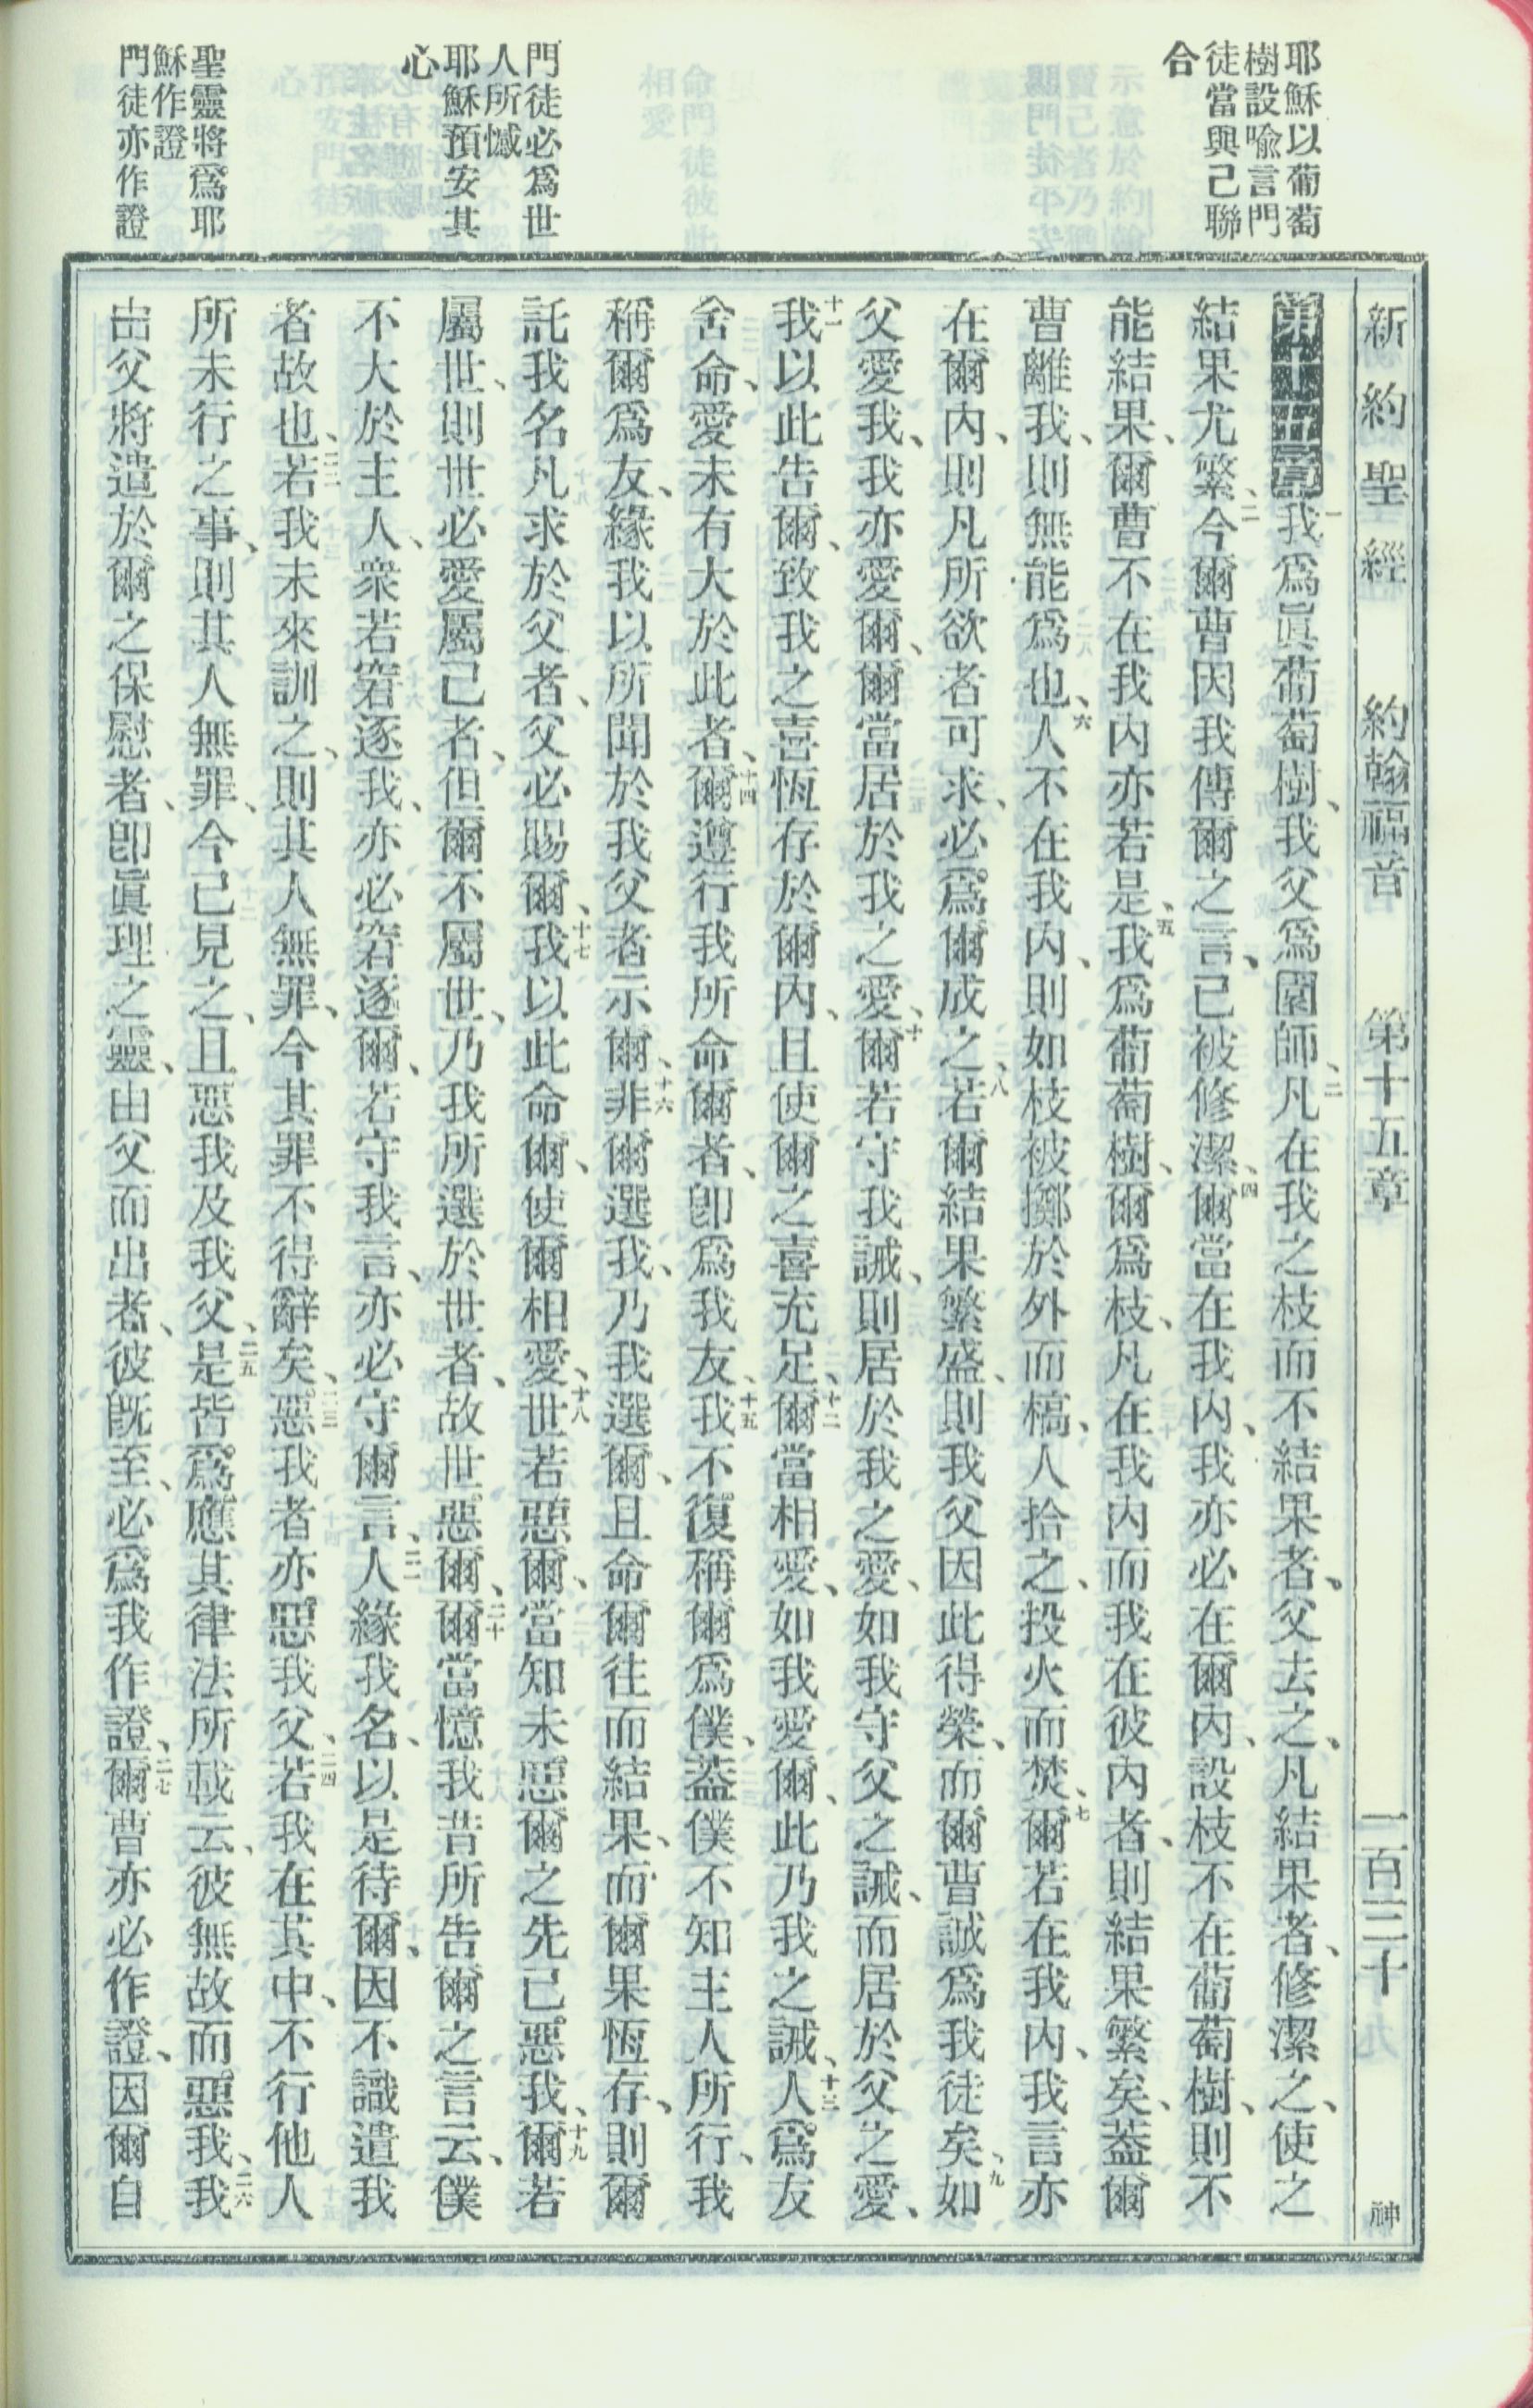 耶穌以葡萄
樹設喩言門
徒當與己聯
合
門徒必爲世
人所憾
耶穌預安其
心
聖靈將爲耶
穌作證
門徒亦作證
新約聖經 約翰福音 第十五章 一百三十 神
第十五章一我爲眞葡萄樹、我父爲園師、二凡在我之枝而不結果者、父去之、凡結果者、修潔之、使之
結果尤繁、三今爾曹因我傳爾之言、已被修潔、四爾當在我內、我亦必在爾內、設枝不在葡萄樹、則不
能結果、爾曹不在我內亦若是、五我爲葡萄樹、爾爲枝、凡在我內而我在彼內者、則結果繁矣、蓋爾
曹離我、則無能爲也、六人不在我內、則如枝被擲於外而槁、人拾之、投火而焚、七爾若在我內、我言亦
在爾內、則凡所欲者可求、必爲爾成之、八若爾結果繁盛、則我父因此得榮、而爾曹誠爲我徒矣、九如
父愛我、我亦愛爾、爾當居於我之愛、十爾若守我誡、則居於我之愛、如我守父之誡、而居於父之愛、
十一我以此告爾、致我之喜恆存於爾內、且使爾之喜充足、十二爾當相愛、如我愛爾、此乃我之誡、十三人爲友
舍命、愛未有大於此者、十四爾遵行我所命爾者、卽爲我友、十五我不復稱爾爲僕、蓋僕不知主人所行、我
稱爾爲友、緣我以所聞於我父者示爾、十六非爾選我、乃我選爾、且命爾往而結果、而爾果恆存、則爾
託我名凡求於父者、父必賜爾、十七我以此命爾、使爾相愛、十八世若惡爾、當知未惡爾之先已惡我、十九爾若
屬世、則世必愛屬己者、但爾不屬世、乃我所選於世者、故世惡爾、二十爾當憶我昔所告爾之言云、僕
不大於主人、衆若窘逐我、亦必窘逐爾、若守我言、亦必守爾言、二一人緣我名、以是待爾、因不識遣我
者故也、二二若我未來訓之、則其人無罪、今其罪不得辭矣、二三惡我者亦惡我父、二四若我在其中、不行他人
所未行之事、則其人無罪、今已見之、且惡我及我父、二五是皆爲應其律法所載云、彼無故而惡我、二六我
由父將遣於爾之保慰者、卽眞理之靈、由父而出者、彼旣至、必爲我作證、二七爾曹亦必作證、因爾自